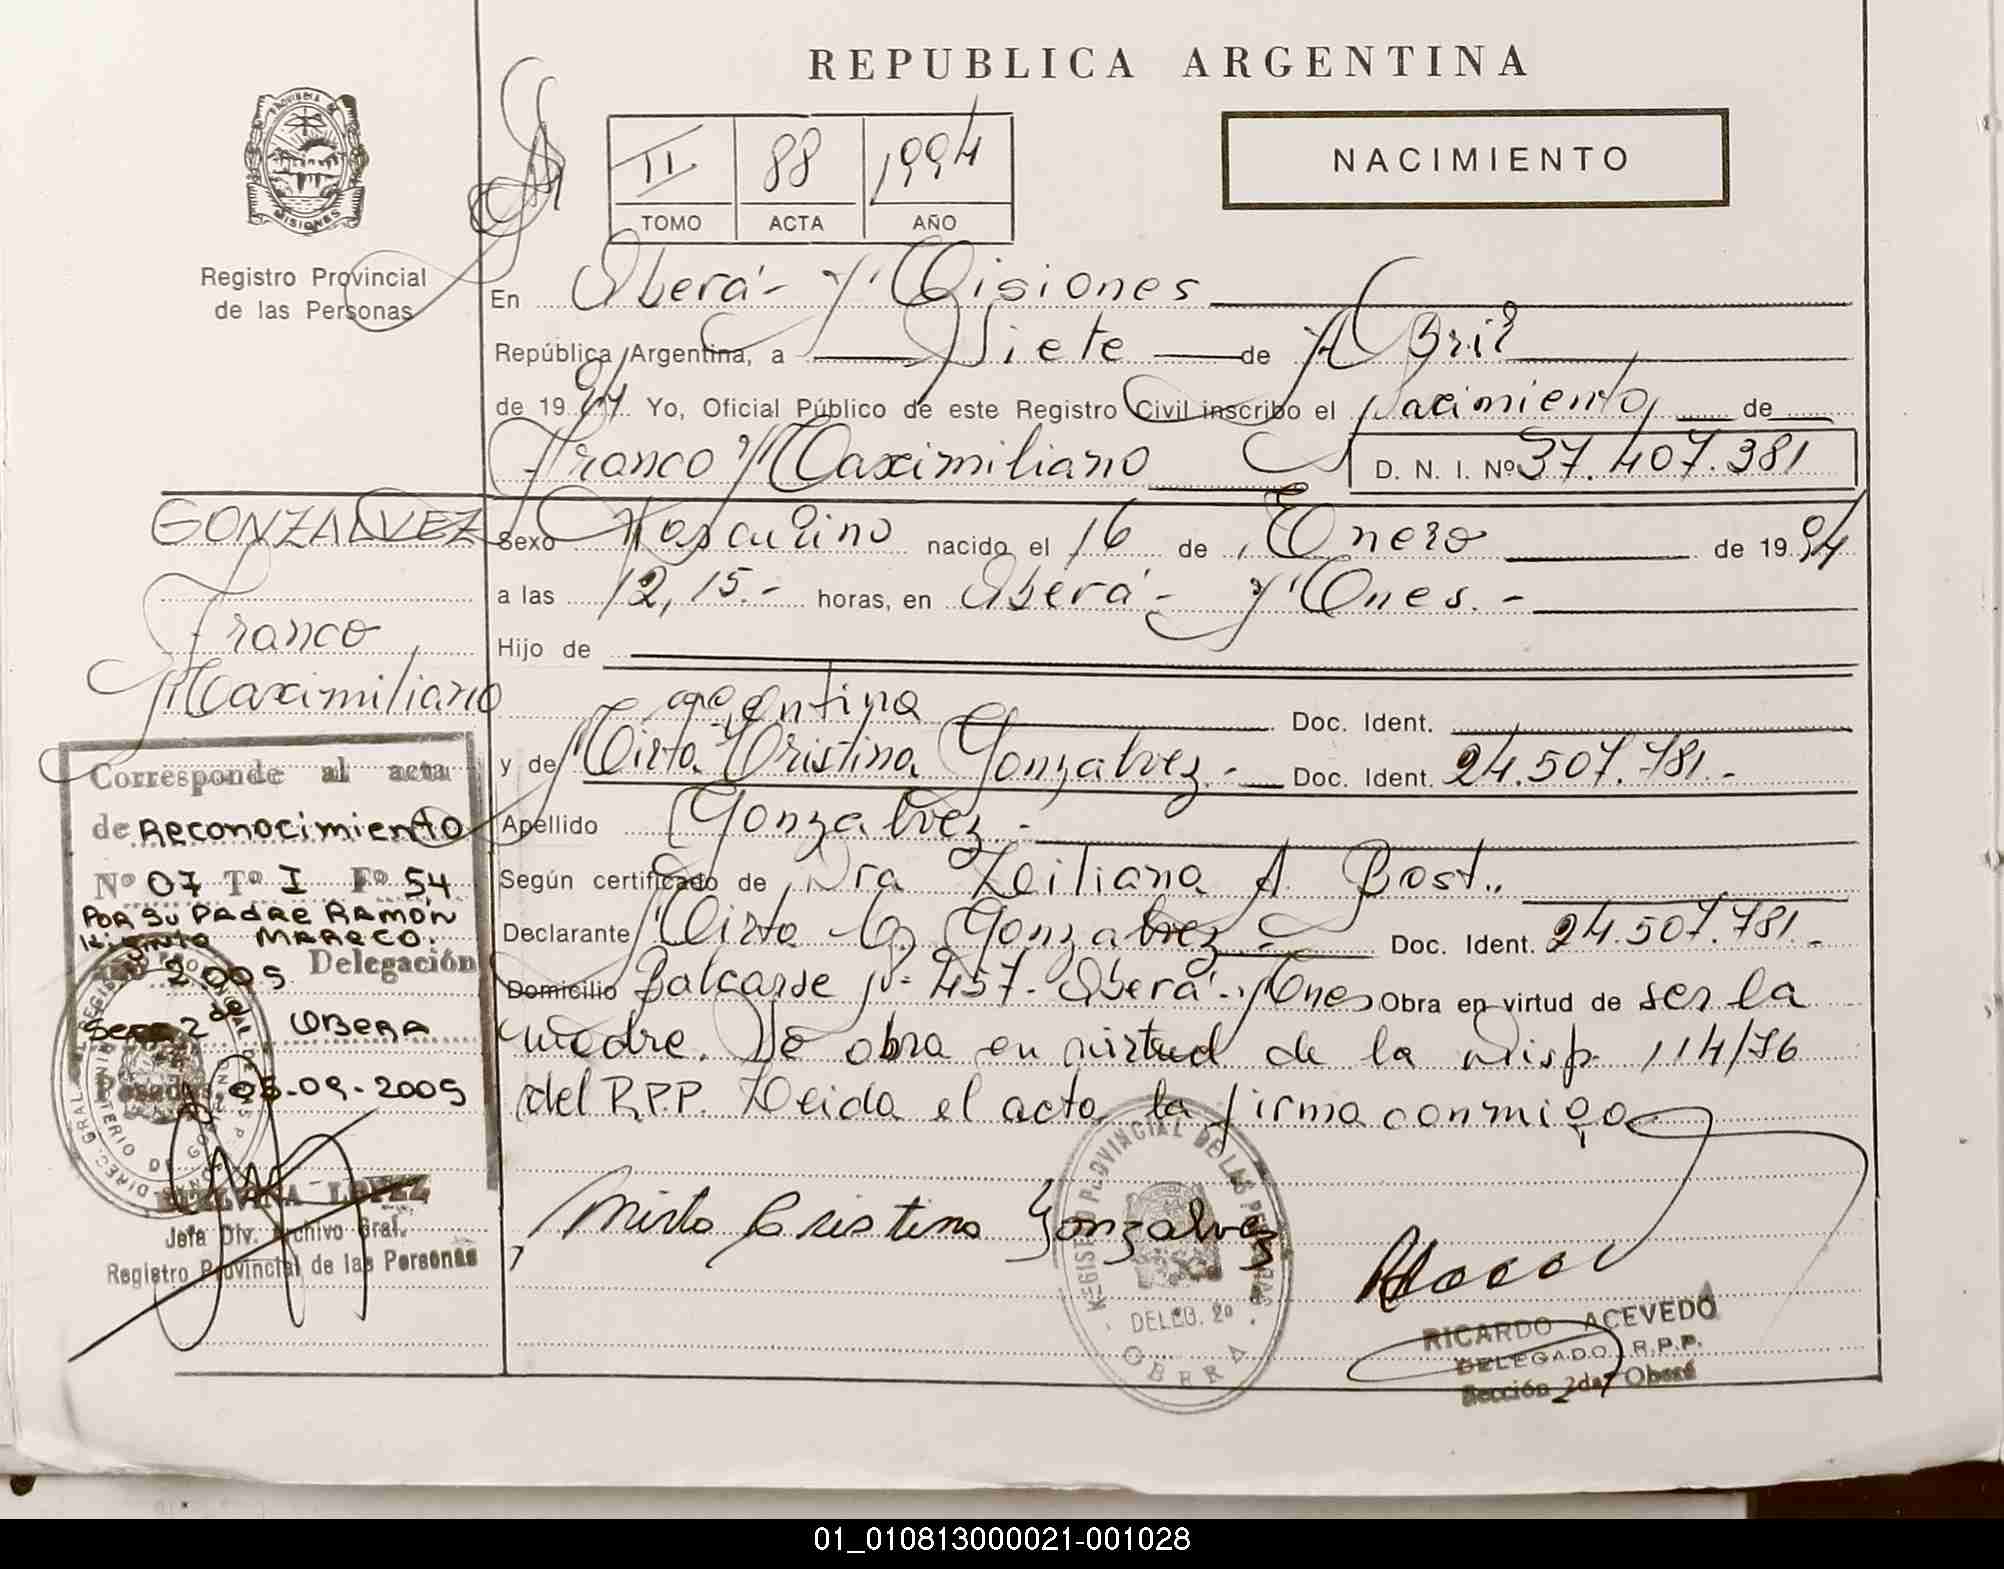 REPUBLICA ARGENTINA
PROVINCIA DE
MISIONES
Registro Provincial
de las Personas
II 88 1994
TOMO ACTA AÑO
NACIMIENTO
En Oberá - Misiones
República Argentina, a Siete de Abril
de 1994 Yo, Oficial Público de este Registro Civil inscribo el Nacimiento de
Franco Maximiliano D. N. I. Nº 37.407.381
GONZALVEZ
Franco
Maximiliano
Sexo Masculino nacido el 16 de Enero de 1994
a las 12,15.- horas, en Oberá - Mnes.-
Hijo de
argentina Doc. Ident.
y de Mirta Cristina Gonzalvez.- Doc. Ident. 24.507.781.-
Apellido Gonzalvez.-
Según certificado de Dra Liliana A. Bost..
Declarante Mirta C. Gonzalvez.- Doc. Ident. 24.507.781.-
Domicilio Balcarse Nº 457. Oberá - Mnes Obra en virtud de ser la
madre. Se obra en virtud de la Disp. 114/76
del R.P.P. Leida el acta la firma conmigo
Corresponde al acta
de Reconocimiento
Nº 07 Tº I Fº 54
POR SU PADRE RAMÓN
MARECO.
2.005 Delegación
Secc 2da OBERA
Posadas, 05-09-2005
LOPEZ
Jefa Div. Archivo Gral.
Registro Provincial de las Personas
Mirta Cristina Gonzalvez
REGISTRO PROVINCIAL DE LAS PERSONAS
DELEG. 2a
OBERA
RICARDO ACEVEDO
DELEGADO R.P.P.
Sección 2da Oberá
01_010813000021-001028